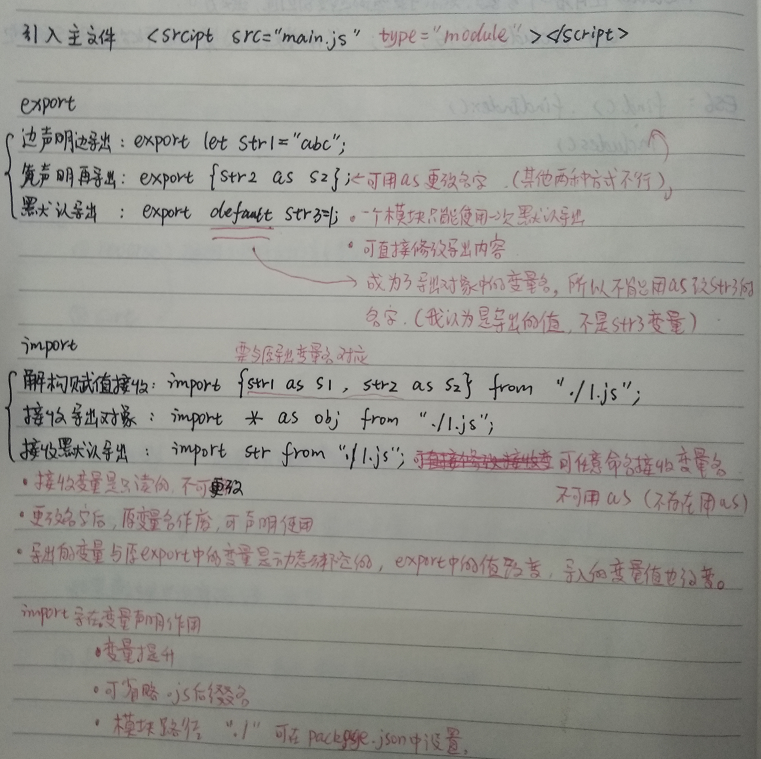 引入主文件 <srcipt src="main.js" type="module"></script>
export
边声明边导出: export let str1="abc";
先声明再导出: export {str2 as s2}; ←可用as更改名字.(其他两种方式不行)
默认导出 : export default str3=1; •一个模块只能使用一次默认导出
•可直接修改导出内容
成为了导出对象中的变量名,所以不能用as改str3的
名字.(我认为是导出的值,不是str3变量)
import
要与原导出变量名对应
解构赋值接收: import {str1 as s1, str2 as s2} from "./1.js";
接收导出对象: import * as obj from "./1.js";
接收默认导出: import str from "./1.js"; 可直接修改接收变 可任意命名接收变量名
•接收变量是只读的,不可更改 不可用as (不存在用as)
•更改名字后,原变量名作废,可声明使用
•导出的变量与原export中的变量是动态绑定的, export中的值改变,导入的变量值也改变。
import 存在变量声明作用
•变量提升
•可省略.js后缀名
•模块路径 "./" 可在package.json中设置.